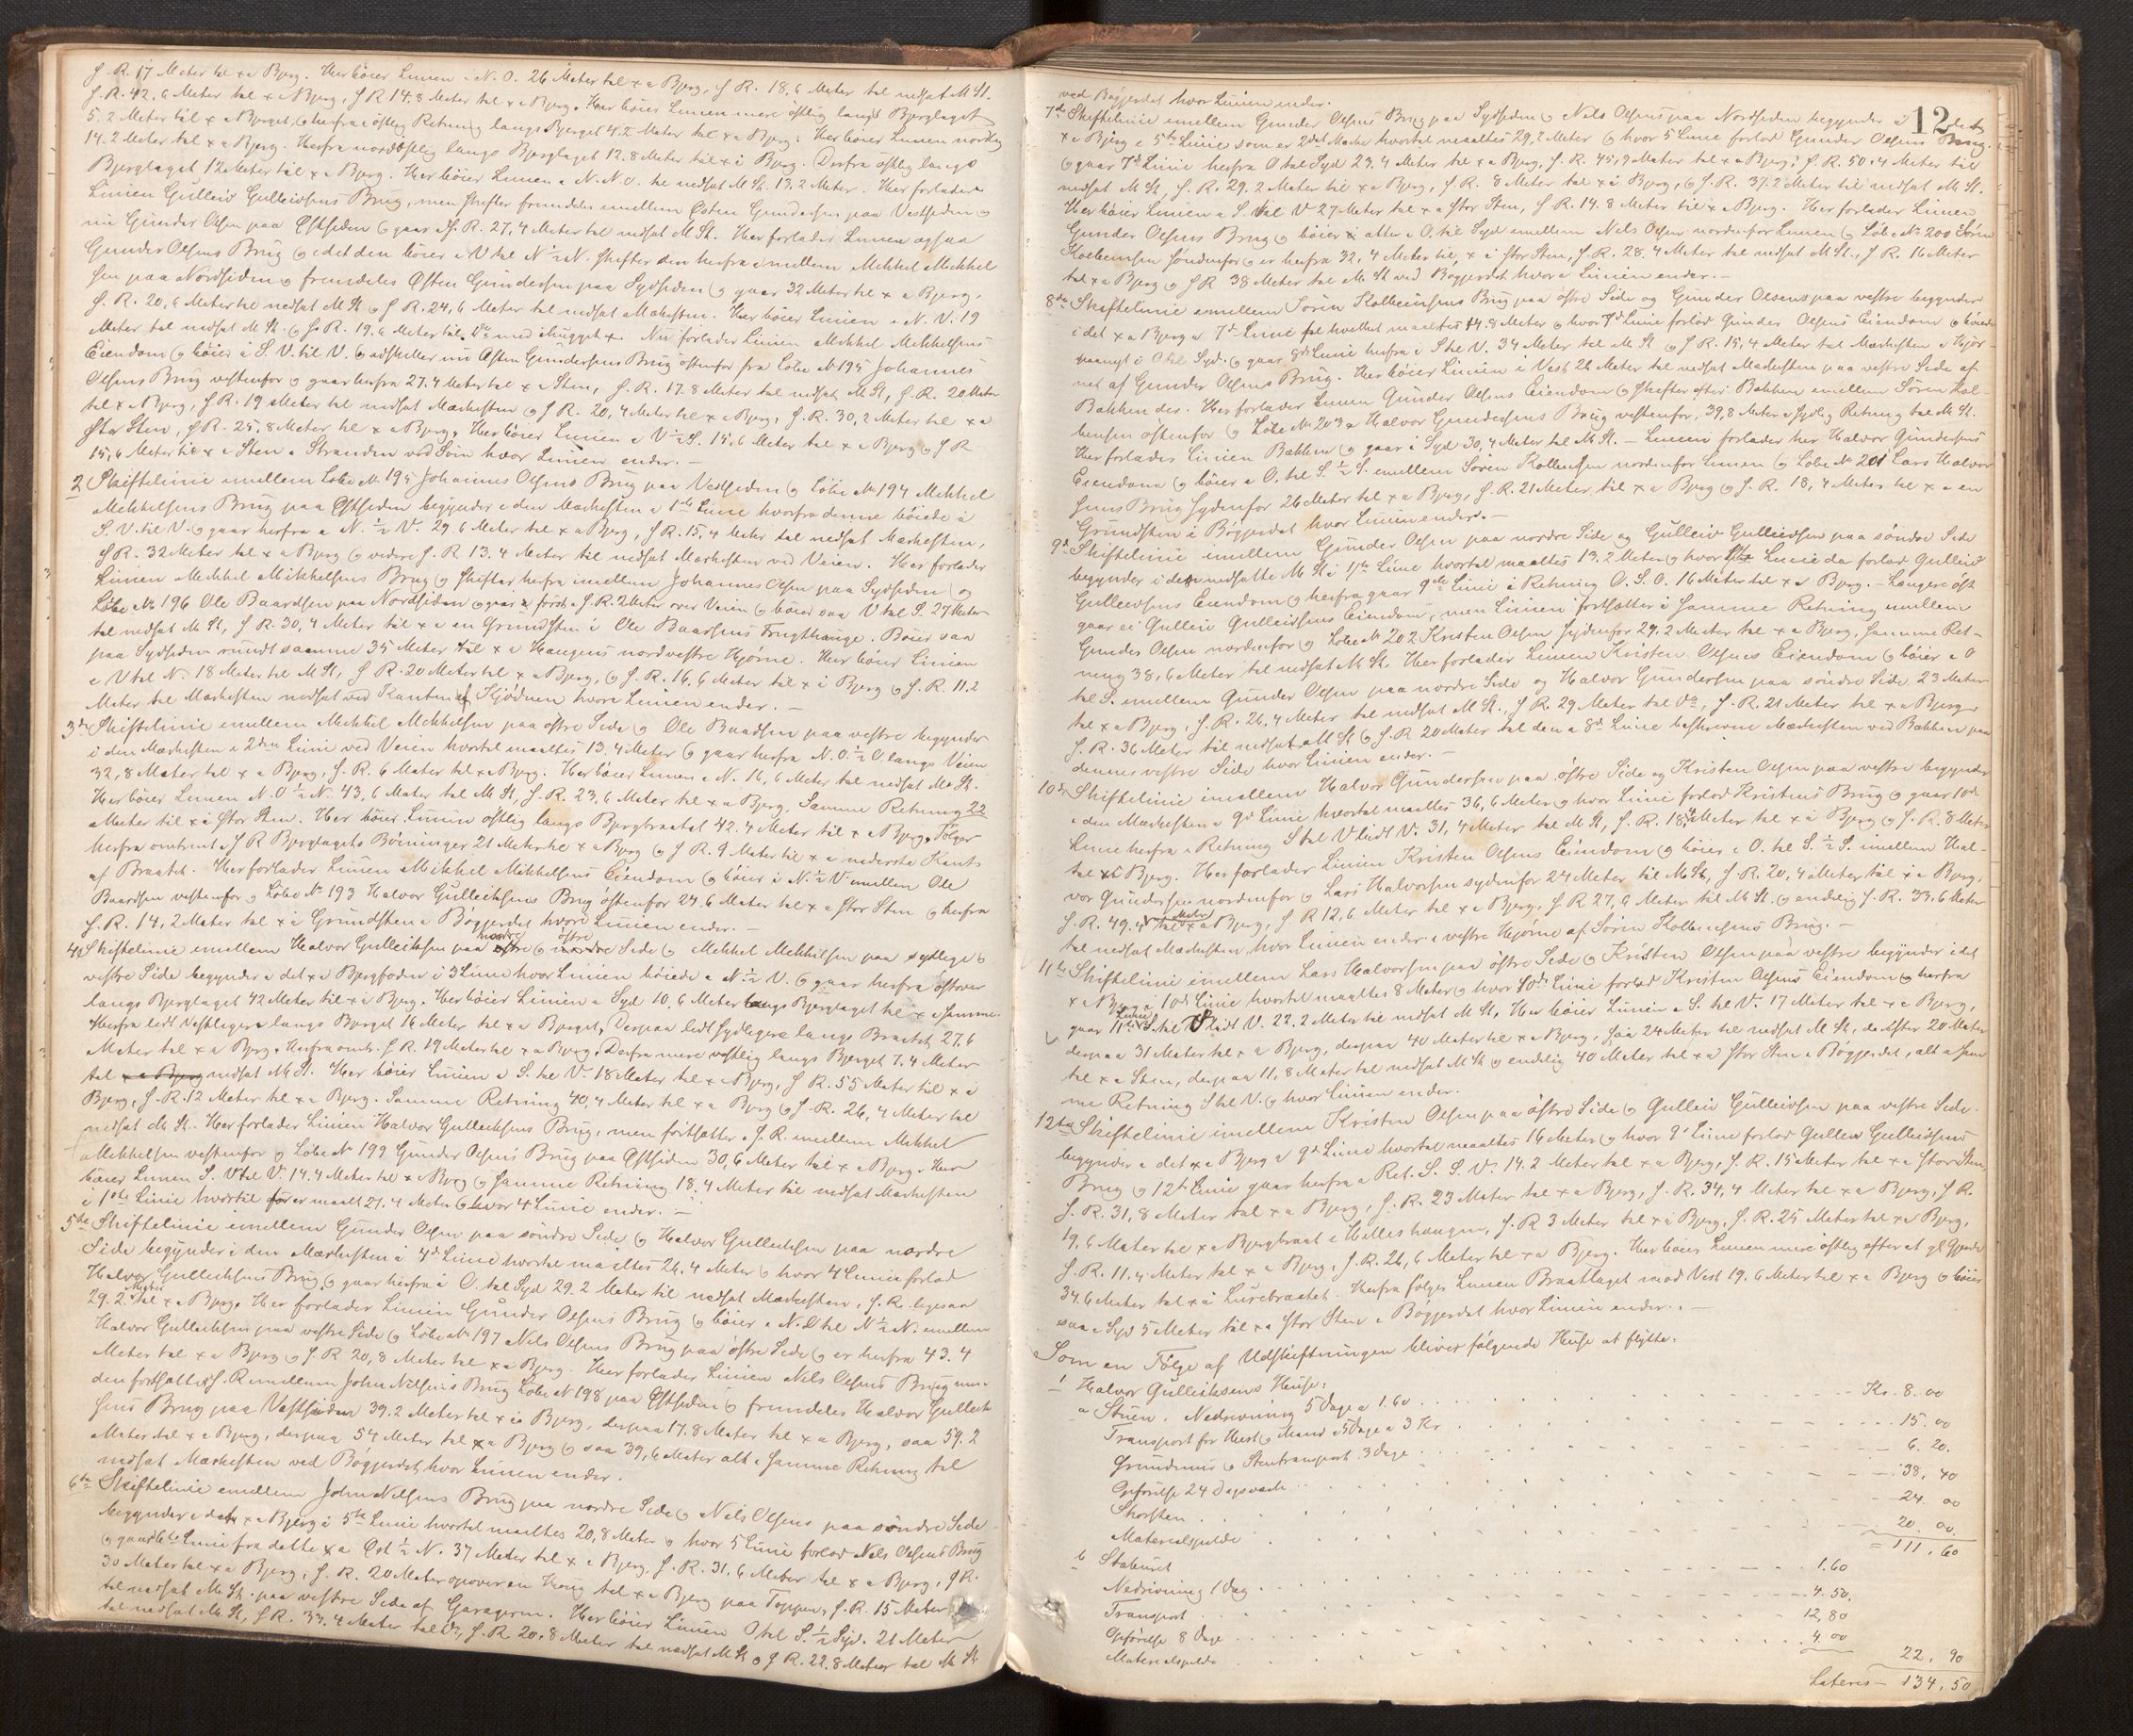 S. R. 17 Meter til x i Bjerg. Her böier Linien i N. O. 26 Meter til x i Bjerg, S R. 18,6 Meter til nedsat M St.
S. R. 42,6 Meter til x i Bjerg, S R 14,8 Meter til x i Bjerg. Her böier Linien mere östlig langs Bjerglaget
5,2 Meter til x i Bjerget, herfra i östlig Retning langs Bjerget 42 Meter til x i Bjerg. Her böier Linien nordlig
14,2 Meter til x i Bjerg. Herfra nordöstlig langs Bjerglaget 12,8 Meter til x i Bjerg. Derfra östlig langs
Bjerglaget 12 Meter til x i Bjerg. Her böier Linien i N. N. O. til nedsat M St. 13,2 Meter. Her forlader
Linien Gulleiv Gulleivsens Brug, men skifter fremdeles imellem Østen Gundersen paa Vestsiden og
nu Gunder Olsen paa Østsiden og gaar i S. R. 27,4 Meter til nedsat M St. Her forlader Linien ogsaa
Gunder Olsens Brug og idet den böier i V til N ½ N. skifter den herfra imellem Mekkel Mekkel
sen paa Nordsiden og fremdeles Østen Gundersen paa Sydsiden og gaar 32 Meter til x i Bjerg,
S. R. 20,6 Meter til nedsat M St og S R 24,6 Meter til nedsat Mærkesten. Her böier Linien i N. V. 19
Meter til nedsat M St. og S. R. 19,6 Meter til do med ihugget x. Nu forlader Linien Mekkel Mekkelsens
Eiendom og böier i S. V. til V. og adskiller nu Østen Gundersens Brug östenfor fra Löbe No 195 Johannes
Olsens Brug vestenfor og gaar herfra 27,4 Meter til x i Sten, S. R. 17,8 Meter til nedsat M St, S. R. 20 Meter
til x i Bjerg, S R. 19 Meter til nedsat Mærkesten og S R. 20,4 Meter til x i Bjerg, S. R. 30,2 Meter til x i
stor Sten, S R. 25,8 Meter til x i Bjerg. Her böier Linien i V ½ S. 15,6 Meter til x i Bjerg og S R
15,6 Meter til x i Sten i Stranden ved Söen hvor Linien ender. —
2 Skiftelinie imellem Löbe No 195 Johannes Olsens Brug paa Vestsiden og Löbe No 194 Mekkel
Mekkelsens Brug paa Østsiden begynder i den Mærkesten i 1ste Linie hvorfra denne böiede i
S. V. til V. og gaar herfra i N. ½ V. 29,6 Meter til x i Bjerg, S R. 15,4 Meter til nedsat Mærkesten,
S R. 32 Meter til x i Bjerg og videre S. R 13,4 Meter til nedsat Mærkesten ved Veien. Her forlader
Linien Mekkel Mikkelsens Brug og skifter herfra imellem Johannes Olsen paa Sydsiden og
Löbe No 196 Ole Baardsen paa Nordsiden og gaar först i S. R. 2 Meter over Veien og böier saa V til S. 27 Meter
til nedsat M St, S R. 30,4 Meter til x i en Grundsten i Ole Baarsens Frugthauge. Böier saa
paa Sydsiden rundt samme 35 Meter til x i Haugens nordvestre Hjørne. Her böier Linien
i V til N. 18 Meter til M St, S R. 20 Meter til x i Bjerg, og S. R. 16,6 Meter til x i Bjerg og S. R. 11,2
Meter til Mærkesten nedsat ved Kanten af Sjöduen hvor Linien ender. —
3de Skiftelinie imellem Mekkel Mekkelsen paa östre Side og Ole Baadsen paa vestre begynder
i den Mærkesten i 2den Linie ved Veien hvortil maaltes 13,4 Meter og gaar herfra N. O. ½ O. langs Veien
32,8 Meter til x i Bjerg, S. R. 6 Meter til x i Bjerg. Her böier Linien i N. 16,6 Meter til nedsat M. St.
Her böier Linien N. O ½ N. 43,6 Meter til M St, S. R. 23,6 Meter til x i Bjerg. Samme Retning 22
Meter til x i stor Sten. Her böier Linien östlig langs Bjergbraatet 42,4 Meter til x i Bjerg, Fölger
herfra omtrent S R Bjerglagets Böininger 21 Meter til x i Bjerg og S R. 9 Meter til x i nederste Kant
af Braatet. Her forlader Linien Mekkel Mikkelsens Eiendom og böier i N. ½ V imellem Ole
Baardsen vestenfor og Löbe No 193 Halvor Gulleiksens Brug östenfor 24,6 Meter til x i stor Sten og herfra
S. R. 14,2 Meter til x i Grundsten i Bøgjerdet hvor Linien ender. —
4de Skiftelinie imellem Halvor Gulleiksen paa nordre og östre Side og Mekkel Mekkelsen paa sydlige og
vestre Side begynder i det x i Bjergfoden i 3 Linie hvor Linien böiede i N. ½ V. og gaar herfra östover
langs Bjerglaget 42 Meter til x i Bjerg. Her böier Linien i Syd 10,6 Meter langs Bjerglaget til x i samme.
Herfra lidt vestligere langs Berget 16 Meter til x i Bjerget, Derpaa lidt sydligere langs Braatet 27,6
Meter til x i Bjerg. Herfra omtr. S. R. 19 Meter til x i Bjerg. Derfra mere vestlig langs Bjerget 7,4 Meter
til x i Bjerg nedsat M St. Her böier Linien i S. til V. 18 Meter til x i Bjerg, S R. 55 Meter til x i
Bjerg, S. R. 12 Meter til x i Bjerg. Samme Retning 40,4 Meter til x i Bjerg og S. R. 26,4 Meter til
nedsat M St. Her forlader Linien Halvor Gulleiksens Brug, men fortsætter i S. R. imellem Mekkel
Mekkelsen vestenfor og Löbe No 199 Gunder Olsens Brug paa Østsiden 30,6 Meter til x i Bjerg. Her
böier Linien S. V til V. 14,4 Meter til x i Bjerg og samme Retning 18,4 Meter til nedsat Mærkesten
i 1ste Linie hvortil før er maalt 27,4 Meter og hvor 4 Linie ender. —
5te Skiftelinie imellem Gunder Olsen paa søndre Side og Halvor Gulleiksen paa nordre
Side begynder i den Mærkesten i 4de Linie hvortil maaltes 26,4 Meter og hvor 4 Linie forlod
Halvor Gulleiksens Brug og gaar herfra i O. til Syd 29,2 Meter til nedsat Mærkesten, S. R. ligesaa
29,2 Meter til x i Bjerg. Her forlader Linien Gunder Olsens Brug og böier i N. O til N ½ N. imellem
Halvor Gulleiksen paa vestre Side og Löbe No 197 Nels Olsens Brug paa östre Side og er herfra 43,4
Meter til x i Bjerg og S. R 20,8 Meter til x i Bjerg. Her forlader Linien Nels Olsens Brug men
den fortsættes S. R imellem John Nilsens Brug Löbe No 198 paa Østsiden og fremdeles Halvor Gulleik
sens Brug paa Vestsiden 39,2 Meter til x i Bjerg, derpaa 17,8 Meter til x i Bjerg, saa 59,2
Meter til x i Bjerg, derpaa 54 Meter til x i Bjerg og saa 39,6 Meter alt i samme Retning til
nedsat Mærkesten ved Bøgjerdet, hvor Linien ender.
6te Skiftelinie imellem John Nelsens Brug paa nordre Side og Nels Olsens paa söndre Side
begynder i det x i Bjerg i 5te Linie hvortil maaltes 20,8 Meter og hvor 5 Linie forlod Nels Olsens Brug
og gaar 6te Linie fra dette x i Øst ½ N. 37 Meter til x i Bjerg, S. R. 31,6 Meter til x i Bjerg, S R.
30 Meter til x i Bjerg, S. R. 20 Meter opover en Haug til x i Bjerg paa Toppen, S. R. 15 Meter
til nedsat M St. paa vestre Side af Garageren. Her böier Linien O til S. ½ Syd. 21 Meter
til nedsat M St, S R. 33,4 Meter til do, S. R 20,8 Meter til nedsat M St og S R. 22,8 Meter til M St
12
ved Bøgjerdet hvor Linien ender.
7de Skiftelinie imellem Gunder Olsens Brug paa Sydsiden og Nels Olsens paa Nordsiden begynder i det
x i Bjerg i 5te Linie som er 2det Mærke hvortil maaltes 29,2 Meter og hvor 5 Linie forlod Gunder Olsens Brug.
og gaar 7de Linie herfra O til Syd 23,4 Meter til x i Bjerg, S. R. 45,9 Meter til x i Bjerg, S. R. 50,4 Meter til
nedsat M St, S. R. 29,2 Meter til x i Bjerg, S. R. 8 Meter til x i Bjerg, og S. R. 37,2 Meter til nedsat M St.
Her böier Linien i S. til V 27 Meter til x i stor Sten, S R. 14,8 Meter til x i Bjerg. Her forlader Linien
Gunder Olsens Brug og böier atter i O. til Syd imellem Nels Olsen nordenfor Linien og Löbe No 200 Sören
Kolbensen söndenfor og er herfra 32,4 Meter til x i stor Sten, S R. 28,4 Meter til nedsat M St., S R. 16 Meter
til x i Bjerg og S R 38 Meter til M St ved Bøgjerdet hvor Linien ender. —
8de Skiftelinie imellem Sören Kolbensens Brug paa östre Side og Gunder Olsens paa vestre begynder
i det x i Bjerg i 7de Linie til hvilket maaltes 14,8 Meter og hvor 7de Linie forlod Gunder Olsens Eiendom og böiede
paanyt i O til Syd. og gaar 8de Linie herfra i S til V. 34 Meter til M St og S R. 15,4 Meter til Mærkesten i Hjör-
net af Gunder Olsens Brug. Her böier Linien i Vest 26 Meter til nedsat Mærkesten paa vestre Side af
Bakken der. Her forlader Linien Gunder Olsens Eiendom og skifter efter Bakken imellem Sören Kol-
bensen östenfor og Löbe No 203 Halvor Gundersens Brug vestenfor, 39,8 Meter i sydlig Retning til M St.
Her forlades Linien Bakken og gaar i Syd 30,4 Meter til M St. — Linien forlader her Halvor Gundersens
Eiendom og böier i O. til S. ½ S. imellem Sören Kolbensen nordenfor Linien og Löbe No 201 Lars Halvor
sens Brug sydenfor 26 Meter til x i Bjerg, S. R. 21 Meter til x i Bjerg og S. R. 18,4 Meter til x i en
Grundsten i Bøgjerdet hvor Linien ender. —
9de Skiftelinie imellem Gunder Olsen paa nordre Side og Gulleiv Gulleivsen paa söndre Side
begynder i den nedsatte M St i 1ste Linie hvortil maaltes 13,2 Meter og hvor 1ste Linie da forlod Gulleiv
Gulleivsens Eiendom og herfra gaar 9de Linie i Retning O. S. O. 16 Meter til x i Bjerg. — Længere öst
gaar ei Gulleiv Gulleivsens Eiendom, men Linien fortsætter i samme Retning imellem
Gunder Olsen nordenfor og Löbe No 202 Kristen Olsen sydenfor 29,2 Meter til x i Bjerg, samme Ret-
ning 38,6 Meter til nedsat M St. Her forlader Linien Kristen Olsens Eiendom og böier i O
til S. imellem Gunder Olsen paa nordre Side og Halvor Gundersen paa söndre Side 23 Meter
til x i Bjerg, S. R. 26,4 Meter til nedsat M St., S R. 29 Meter til do, S. R. 21 Meter til x i Bjerg
S. R. 36 Meter til nedsat M St og S R 20 Meter til den i 8de Linie beskrevne Mærkesten ved Bakken paa
dennes vestre Side hvor Linien ender. —
10de Skiftelinie imellem Halvor Gundersen paa östre Side og Kristen Olsen paa vestre begynder
i den Mærkesten i 9de Linie hvortil maaltes 36,6 Meter og hvor Linie forlod Kristens Brug og gaar 10de
Linie herfra i Retning S til V lidt V. 31,4 Meter til M St, S. R. 18,4 Meter til x i Bjerg og S. R. 8 Meter
til x i Bjerg. Her forlader Linien Kristen Olsens Eiendom og böier i O. til S. ½ S. imellem Hal-
vor Gundersen nordenfor og Lars Halvorsen sydenfor 24 Meter til M St, S R. 20,4 Meter til x i Bjerg,
S. R. 49,4 Meter til x i Bjerg, S R 12,6 Meter til x i Bjerg, S R 27,6 Meter til M St. og endelig S. R. 33,6 Meter
til nedsat Mærkesten, hvor Linien ender i vestre Hjørne af Sören Kolbensens Brug. —
11te Skiftelinie imellem Lars Halvorsen paa östre Side og Kristen Olsen paa vestre begynder i det
x i Bjerg i 10de Linie hvortil maaltes 8 Meter og hvor 10de Linie forlod Kristen Olsens Eiendom og herfra
gaar 11te Linie S. til V lidt V. 22,2 Meter til nedsat M St, Her böier Linien i S. til V. 17 Meter til x i Bjerg,
derpaa 31 Meter til x i Bjerg, derpaa 40 Meter til x i Bjerg, saa 24 Meter til nedsat M St, derefter 20 Meter
til x i Sten, derpaa 11,8 Meter til nedsat M St og endelig 40 Meter til x i stor Sten i Bøgjerdet, alt i sam
me Retning S til V. og hvor Linien ender.
12te Skiftelinie imellem Kristen Olsen paa östre Side og Gulleiv Gulleivsen paa vestre Side.
begynder i det x i Bjerg i 9de Linie hvortil maaltes 16 Meter og hvor 9de Linie forlod Gulleiv Gulleivsens
Brug og 12te Linie gaar herfra i Ret. S. S. V. 14,2 Meter til x i Bjerg, S. R. 15 Meter til x i stor Sten,
S. R. 31,8 Meter til x i Bjerg, S. R. 23 Meter til x i Bjerg, S. R. 34,4 Meter til x i Bjerg, S R.
19,6 Meter til x i Bjergbraat i Hilleshaugen, S. R 3 Meter til x i Bjerg, S. R. 25 Meter til x i Bjerg,
S. R. 11,4 Meter til x i Bjerg, S. R. 26,6 Meter til x i Bjerg. Her böier Linien mere östlig efter et gl Gjerde
34,6 Meter til x i Lurebraatet. Herfra fölger Linien Braatlaget mod Vest 19,6 Meter til x i Bjerg og böier
saa i Syd 5 Meter til x i stor Sten i Bøgjerdet hvor Linien ender. —
Som en Følge af Udskiftningen bliver følgende Huse at flytte:
1 Halvor Gulleiksens Huse:
a Stuen. Nedrivning 5 Dage a 1.60 Kr. 8.00
Transport for Hest og Mand i 5 Dage a 3 Kr 15.00
Grundmur og Stentransport 3 Dage 6.20.
Opförelse 24 Dagsværk 38,40
Skorsten 24.00
Materialspilde 20.00.
= 111,60
b Staburet
Nedrivning 1 Dag 1.60
Transport 4.50.
Opförelse 8 Dage 12,80
Materialspilde 4.00
22,90
Lateris — 134,50